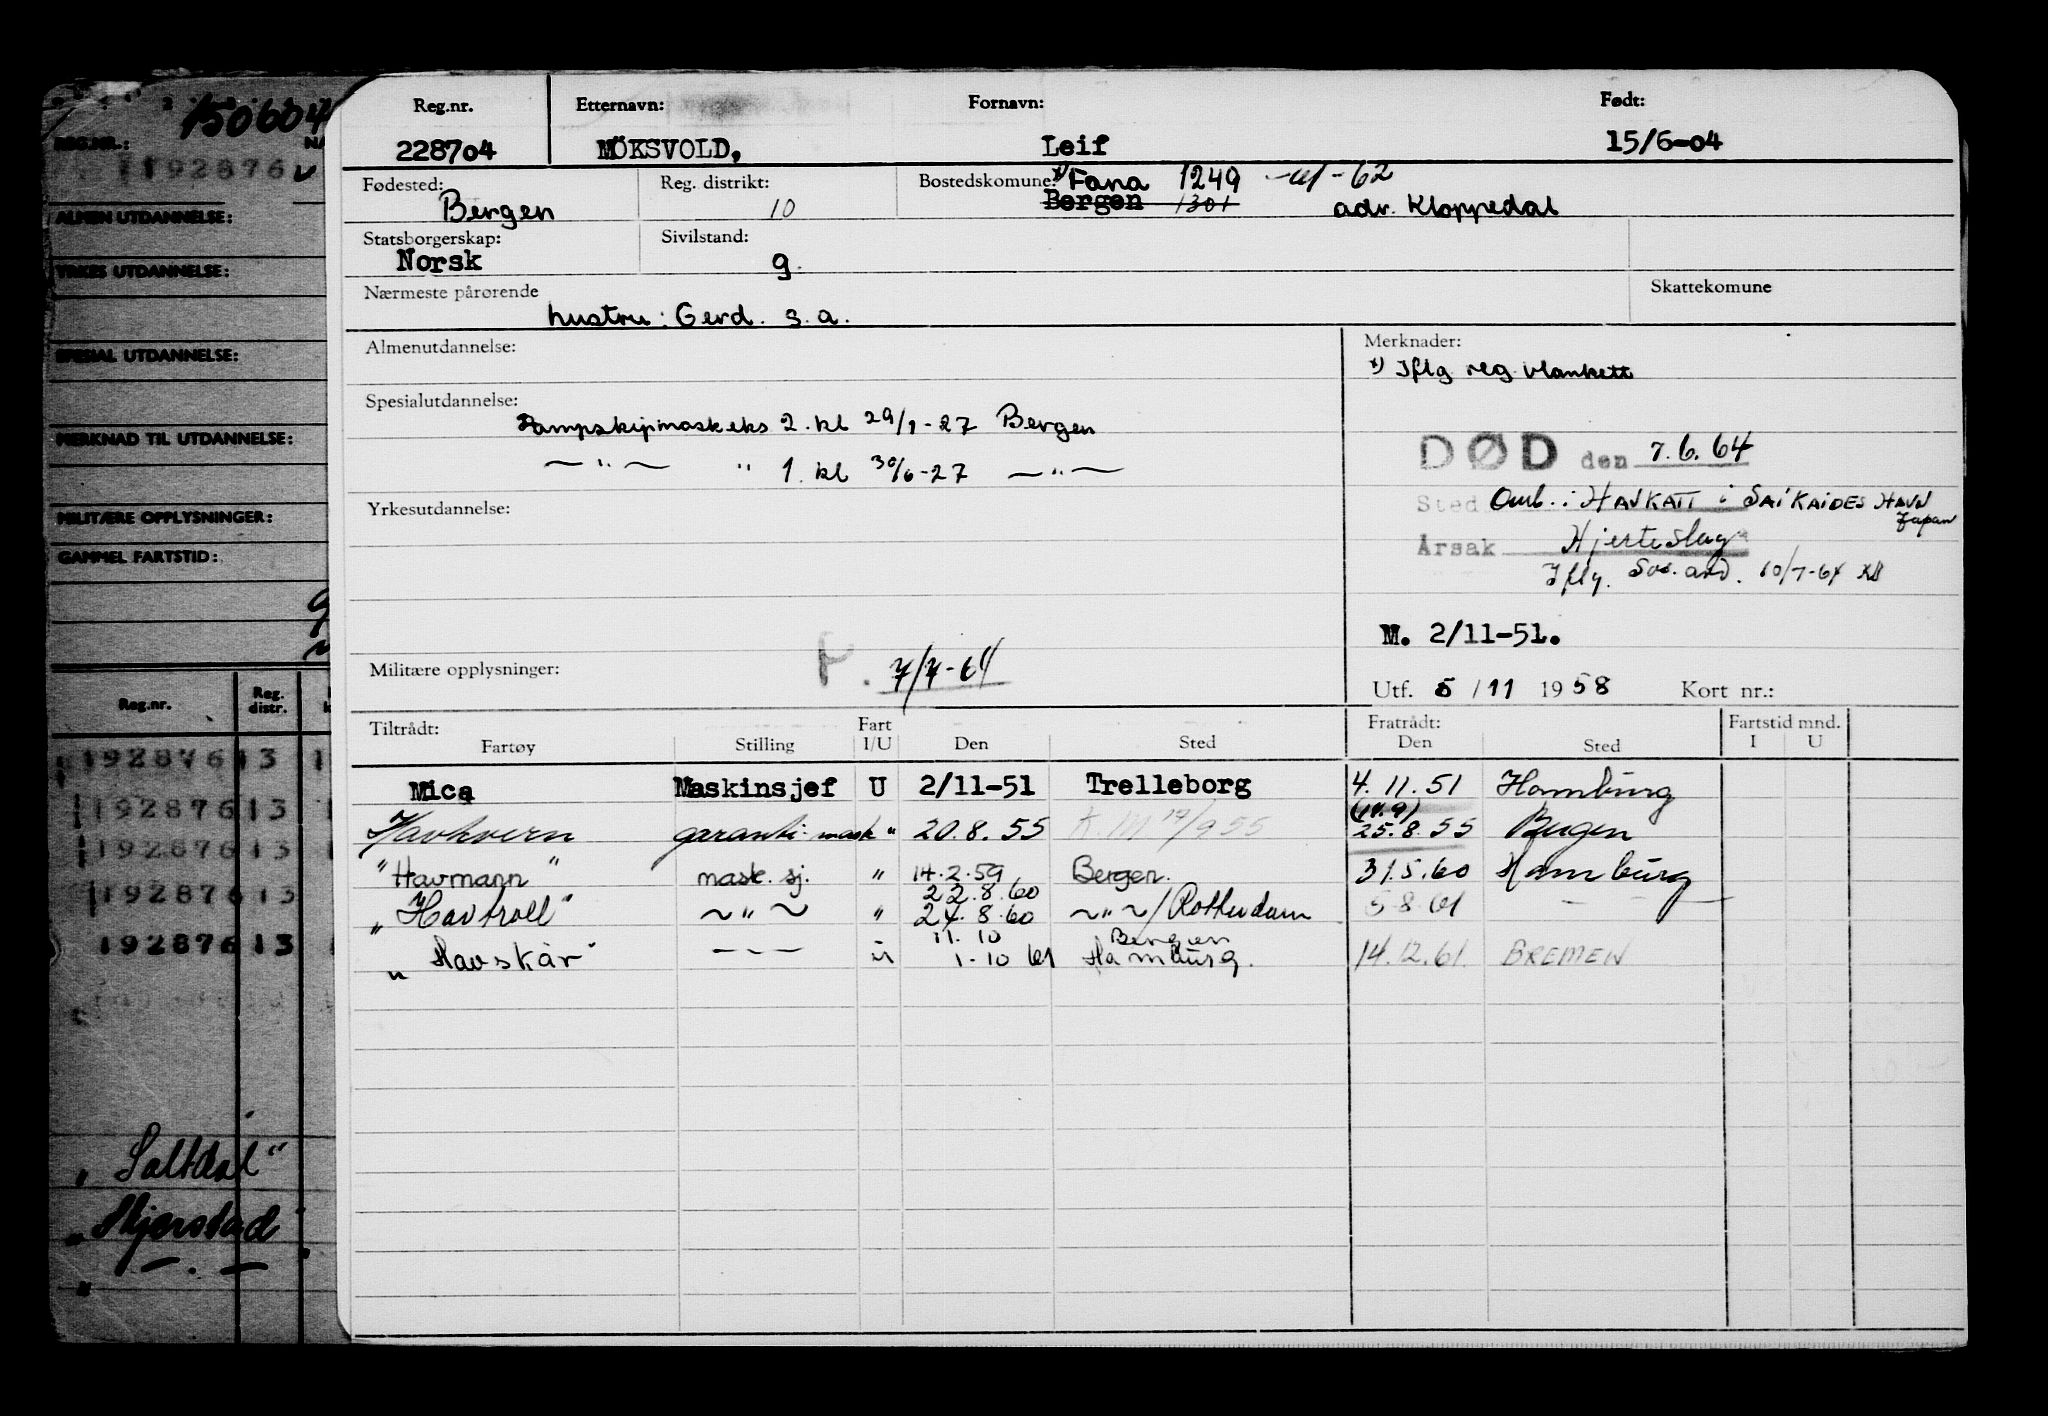 150604
REG.NR.: NA
192876
ALMEN UTDANNELSE:
YRKES UTDANNELSE:
SPESIAL UTDANNELSE:
MERKNAD TIL UTDANNELSE:
MILITÆRE OPPLYSNINGER:
GAMMEL FARTSTID:
Reg.nr. Reg. distr.
192876 13
192876 13
192876 13
192876 13
192876 13
"Saltdal"
"Hjerstad"
Reg.nr. Etternavn: Fornavn: Født:
228704 MÖKSVOLD, Leif 15/6-04
Fødested: Reg. distrikt: Bostedskommune: x) Fana 1249 -62
Bergen 10 Bergen 1301 adr. Kloppedal
Statsborgerskap: Sivilstand:
Norsk g.
Nærmeste pårørende Skattekomune
hustru: Gerd. s.a.
Almenutdannelse: Merknader:
x) Iflg reg. blankett
Spesialutdannelse:
Dampskipmaskeks 2. kl 29/1-27 Bergen
— " — " 1. kl 30/6-27 — " —
DØD den 7.6.64
Sted Omb. i HAVKATT i SAIKAIDES HAVN
Japan
Yrkesutdannelse:
Årsak Hjerteslag
Iflg. Sos. avd. 10/7-64
M. 2/11-51.
Militære opplysninger: F. 7/7-64
Utf. 5/11 1958 Kort nr.:
Tiltrådt: Fart Fratrådt: Fartstid mnd.
Fartøy Stilling I/U Den Sted Den Sted I U
Mica Maskinsjef U 2/11-51 Trelleborg 4.11.51 Hamburg
(14.9)
Havkvern garanti-mask " 20.8.55 KM 14/9 55 25.8.55 Bergen
"Havmann" mask. sj. " 14.2.59 Bergen. 31.5.60 Hamburg
22.8.60
"Havtroll" ~ " ~ " 24.8.60 ~ " ~ / Rotterdam 5-8.61 — —
11.10 Bergen
"Havskår" - - - " 1-10 61 Hamburg. 14.12.61. BREMEN